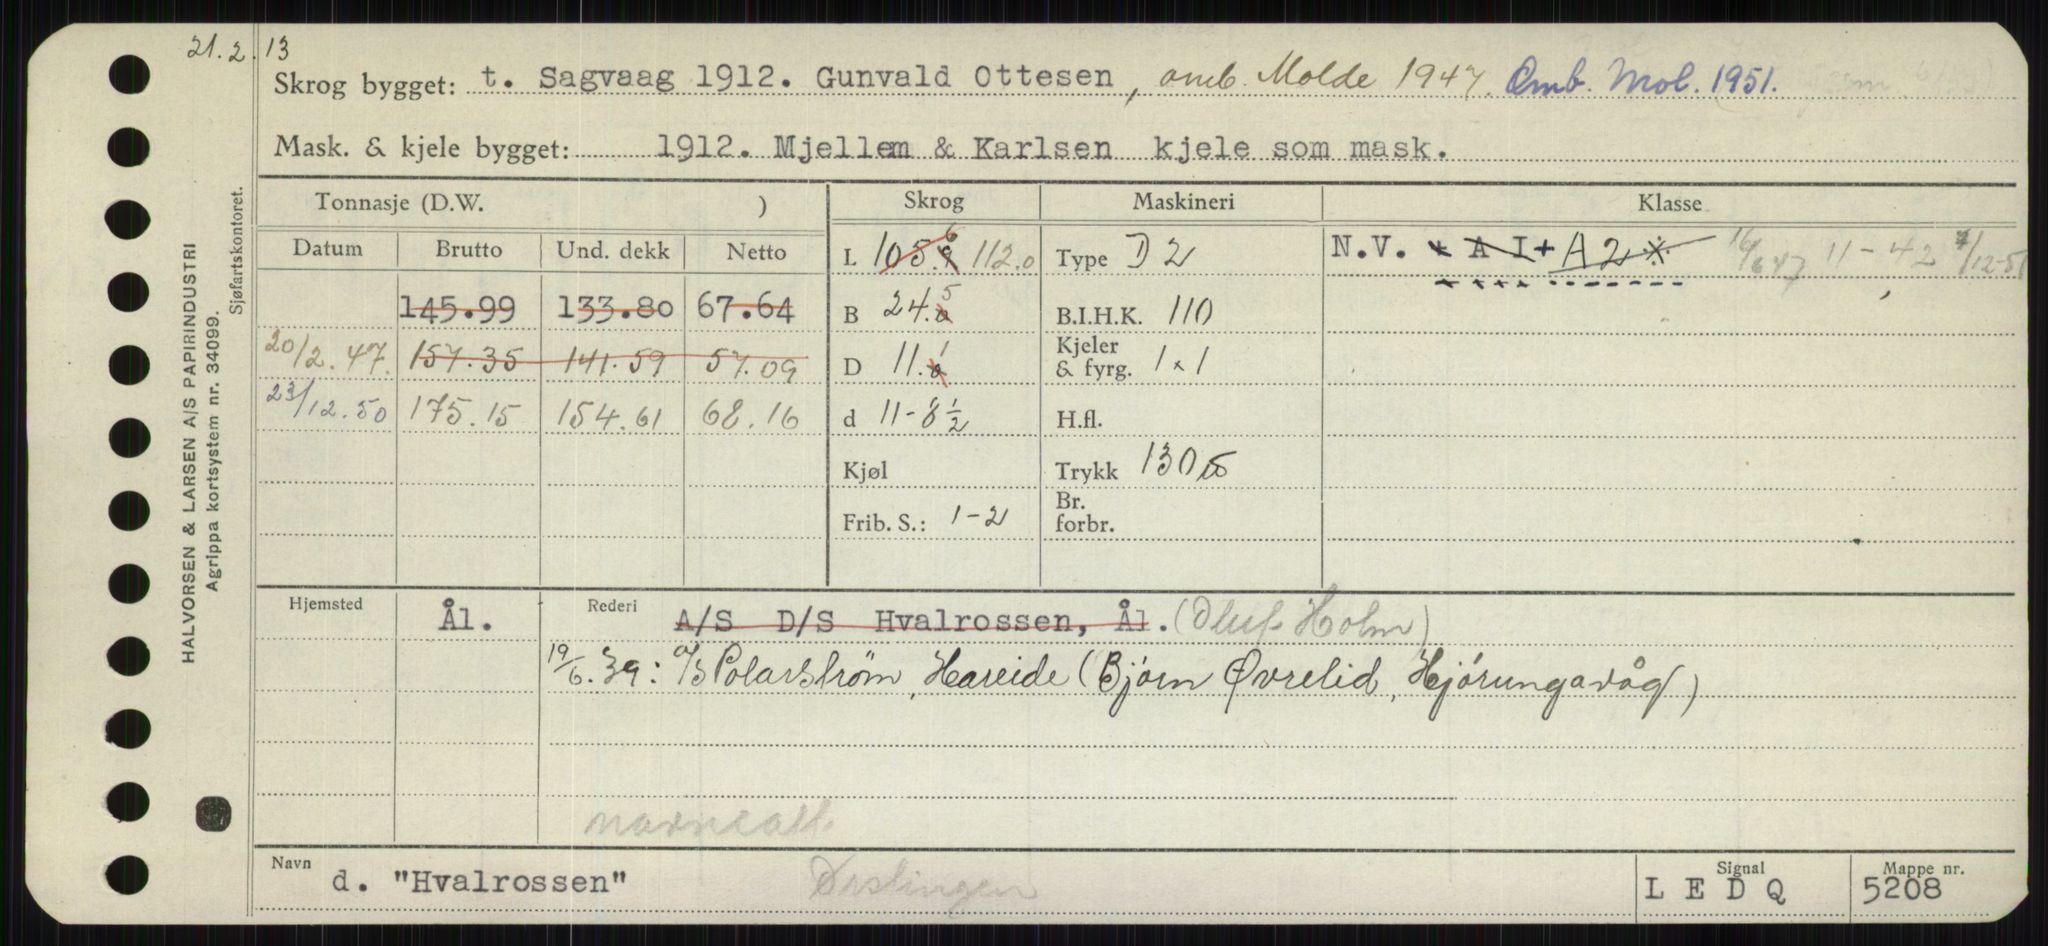 21.2.13
Skrog bygget: t. Sagvaag 1912. Gunvald Ottesen, omb. Molde 1947. Omb. Mol. 1951.
Mask. & kjele bygget: 1912. Mjellem & Karlsen kjele som mask.
Tonnasje (D.W. ) Skrog Maskineri Klasse
Datum Brutto Und. dekk Netto L 105. 112.0 Type D2 N.V. + A I + A2 * 16/6 47 11-42 7/12-51
145.99 133.80 67.64 B 24.5 B.I.H.K. 110
20/2.47. 157.35 141.59 57.09 D 11.1 Kjeler & fyrg. 1 x 1
23/12.50 175.15 154.61 68.16 d 11-8½ H.fl.
Kjøl Trykk 130 lb
Frib. S.: 1-2 Br. forbr.
Hjemsted Ål. Rederi A/S D/S Hvalrossen, Ål. (Oluf Holm)
19/6.39: A/S Polarstrøm, Hareide (Bjørn Øvrelid, Hjørungavåg)
Navn d. "Hvalrossen" Signal L E D Q Mappe nr. 5208
HALVORSEN & LARSEN A/S PAPIRINDUSTRI
Agrippa kortsystem nr. 34099.
Sjøfartskontoret.